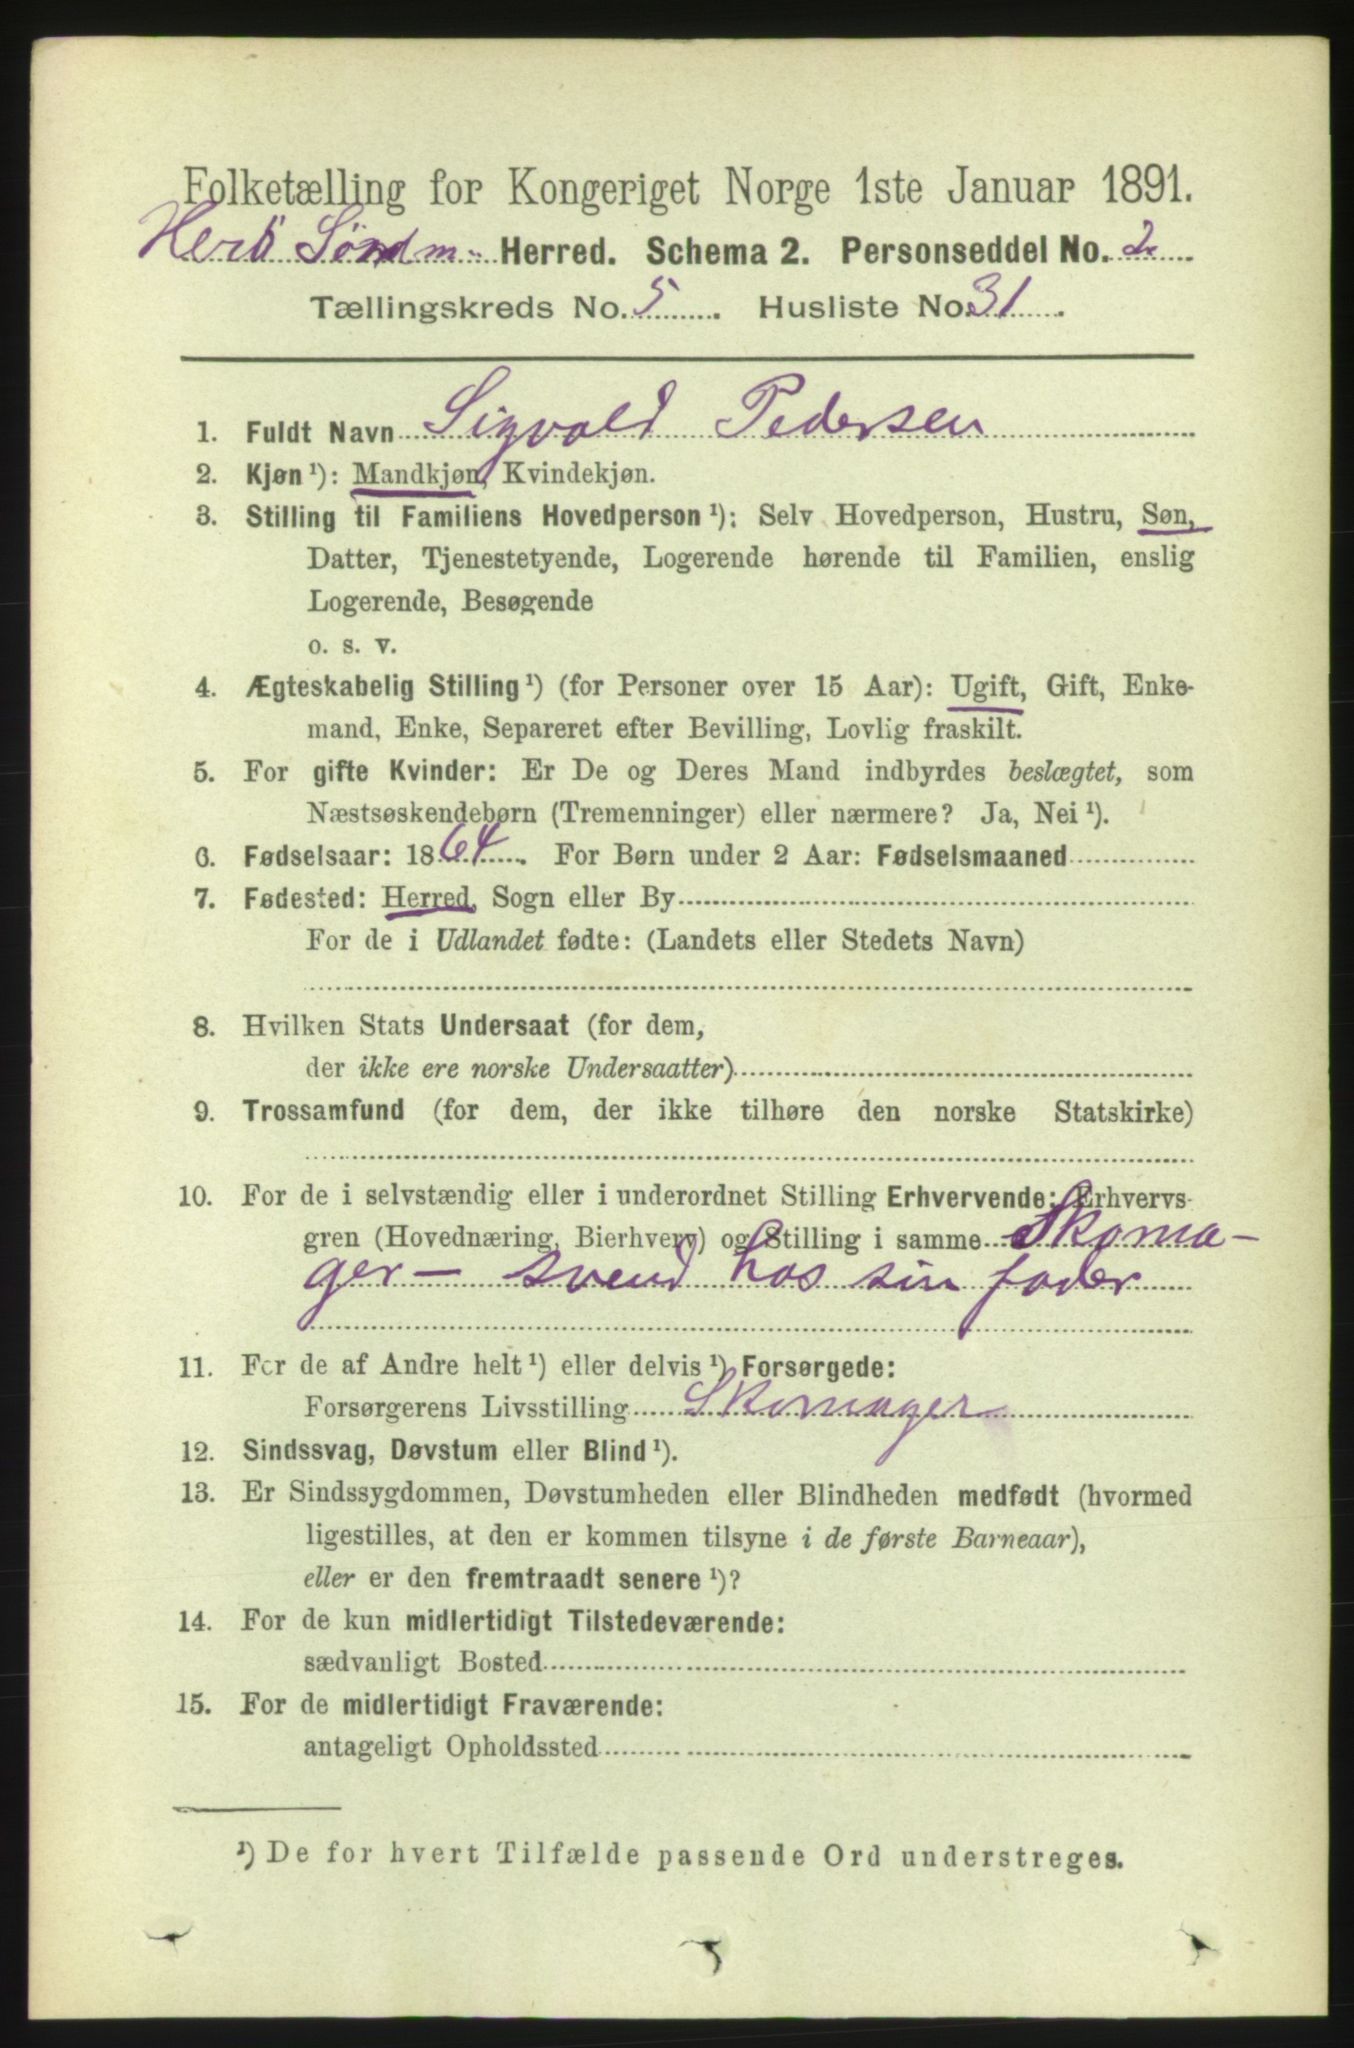 Folketælling for Kongeriget Norge 1ste Januar 1891.
Herö Søndm. Herred. Schema 2. Personseddel No. 2
Tællingskreds No. 5. Husliste No. 31.
1. Fuldt Navn Sigvald Pedersen
2. Kjøn ¹): Mandkjøn, Kvindekjøn.
3. Stilling til Familiens Hovedperson ¹): Selv Hovedperson, Hustru, Søn,
Datter, Tjenestetyende, Logerende hørende til Familien, enslig
Logerende, Besøgende
o. s. v.
4. Ægteskabelig Stilling ¹) (for Personer over 15 Aar): Ugift, Gift, Enke-
mand, Enke, Separeret efter Bevilling, Lovlig fraskilt.
5. For gifte Kvinder: Er De og Deres Mand indbyrdes beslægtet, som
Næstsøskendebørn (Tremenninger) eller nærmere? Ja, Nei ¹).
6. Fødselsaar: 1864. For Børn under 2 Aar: Fødselsmaaned
7. Fødested: Herred, Sogn eller By
For de i Udlandet fødte: (Landets eller Stedets Navn)
8. Hvilken Stats Undersaat (for dem,
der ikke ere norske Undersaatter)
9. Trossamfund (for dem, der ikke tilhøre den norske Statskirke)
10. For de i selvstændig eller i underordnet Stilling Erhvervende: Erhvervs-
gren (Hovednæring, Bierhverv) og Stilling i samme Skoma-
ger - svend hos sin fader
11. For de af Andre helt ¹) eller delvis ¹) Forsørgede:
Forsørgerens Livsstilling Skomager
12. Sindssvag, Døvstum eller Blind ¹).
13. Er Sindssygdommen, Døvstumheden eller Blindheden medfødt (hvormed
ligestilles, at den er kommen tilsyne i de første Barneaar),
eller er den fremtraadt senere ¹)?
14. For de kun midlertidigt Tilstedeværende:
sædvanligt Bosted
15. For de midlertidigt Fraværende:
antageligt Opholdssted
¹) De for hvert Tilfælde passende Ord understreges.